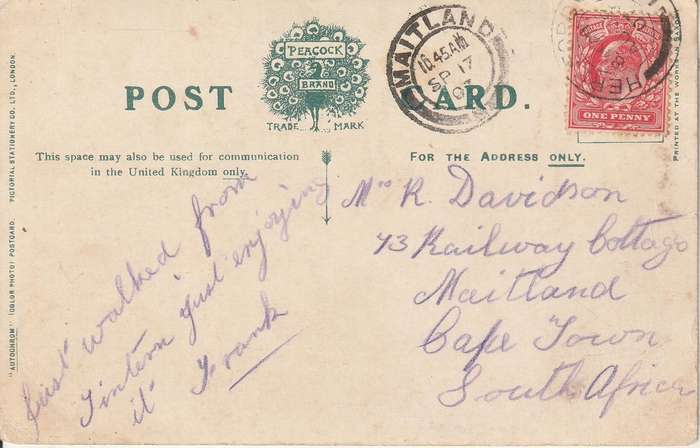 PEACOCK
BRAND
TRADE MARK
POST CARD.
MAITLAND
10.45 AM
SP 17
07
HEREFORD
ONE PENNY
This space may also be used for communication
in the United Kingdom only.
FOR THE ADDRESS ONLY.
Just walked from
Tintern just enjoying
it Frank
Mrs R. Davidson
43 Railway Cottage
Maitland
Cape Town
South Africa
"AUTOCHROM" (COLOR PHOTO) POSTCARD. PICTORIAL STATIONERY CO. LTD., LONDON.
PRINTED AT THE WORKS IN SAXONY